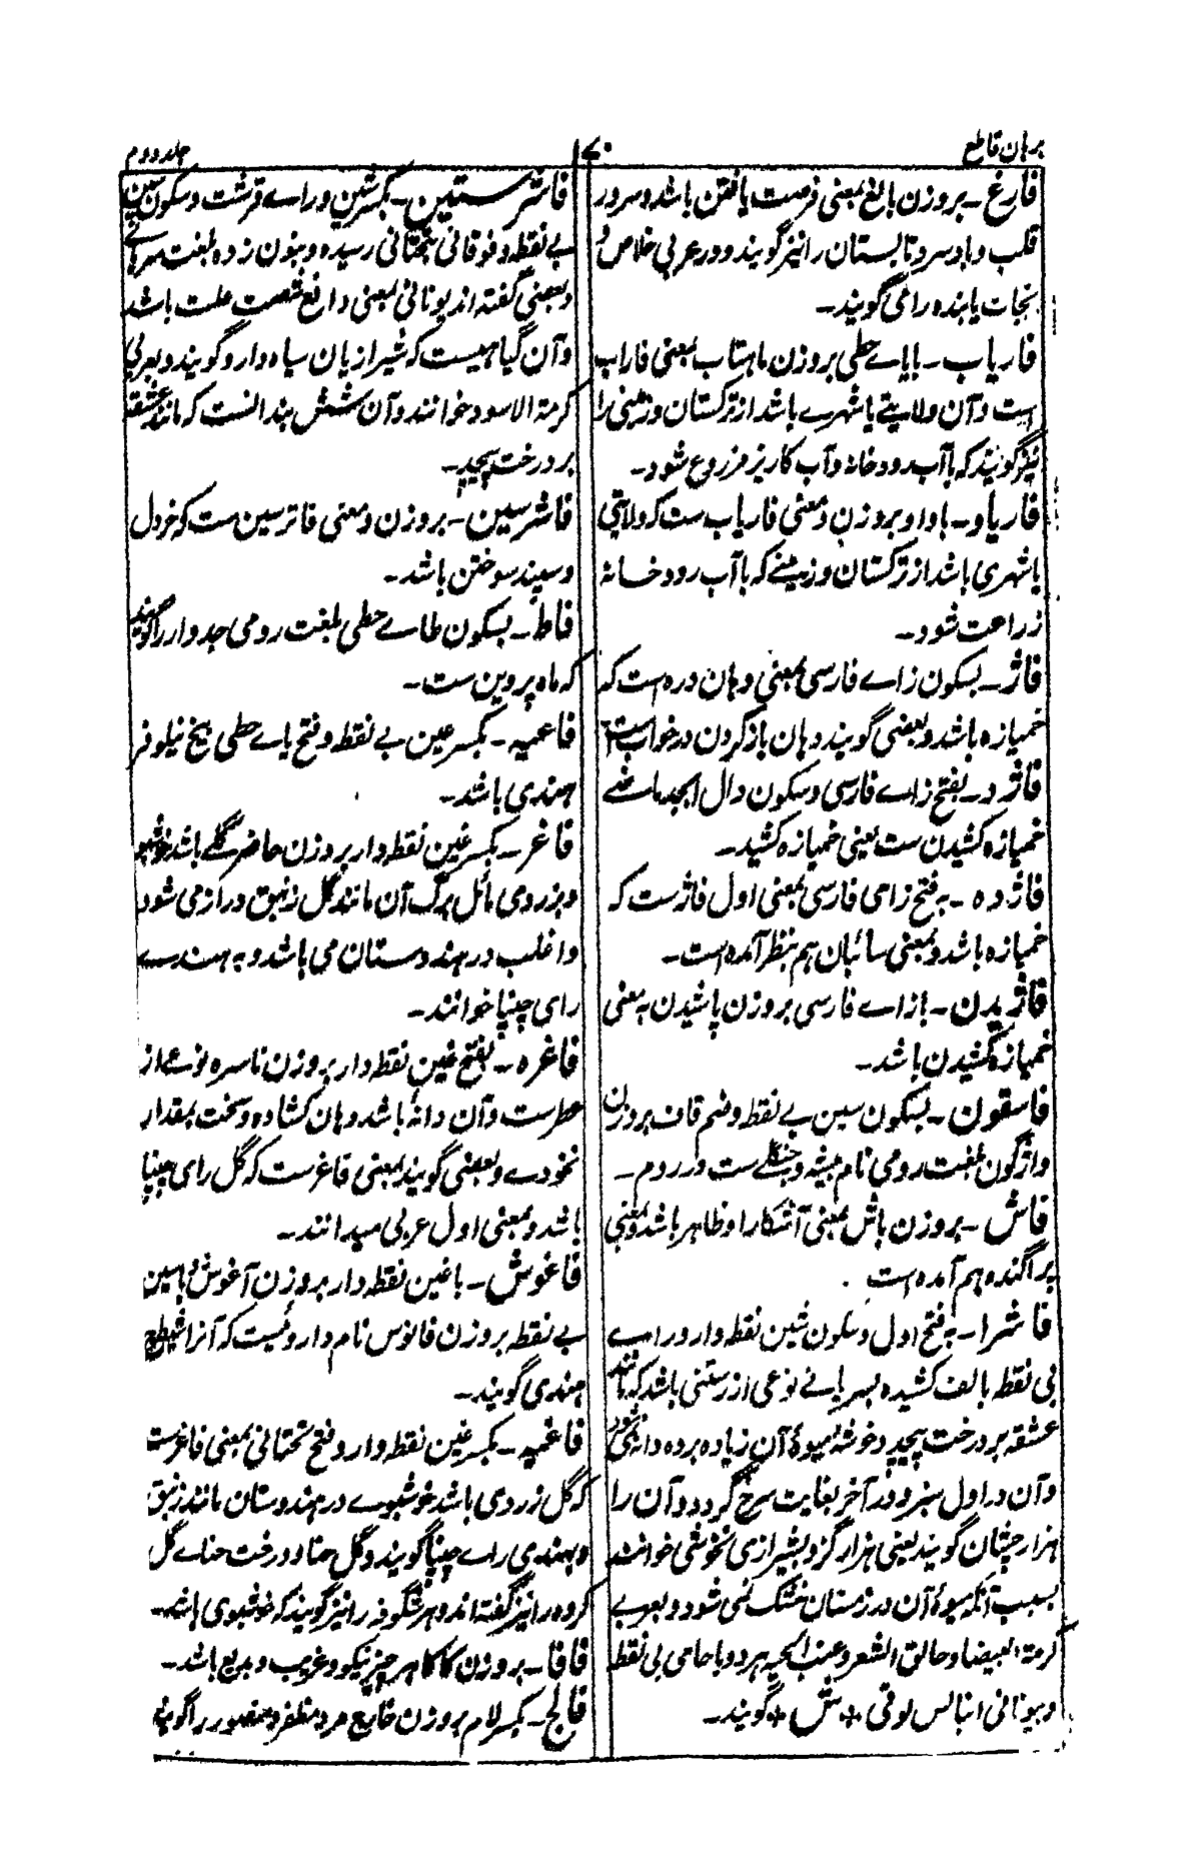 برهان قاطع
۷۰
جلد دوم
فارغ - بروزن بالغ بمعنی فرصت یافتن باشد و سرور
قلب و باد سرد تابستان را نیز گویند و در عربی خلاص و
نجات یابنده را می گویند -
فاریاب - بایاے حطی بروزن ماهتاب بمعنی فاراب
است و آن ولایتے یا شهرے باشد از ترکستان و زمینی را
نیز گویند که بآب رودخانه و آب کاریز مزروع شود -
فاریاو - با واو بروزن و معنی فاریاب ست که ولایتی
یا شهری باشد از ترکستان و زمینے که با آب رودخانه
زراعت شود -
فاژ - بسکون زاے فارسی بمعنی دهان دره است که
خمیازه باشد و بعضی گویند دهان باز کردن در خواب ست
فاژد - بفتح زاے فارسی و سکون دال ابجد ماضے
خمیازه کشیدن ست یعنی خمیازه کشید -
فاژده - به فتح زامی فارسی بمعنی اول فاژست که
خمیازه باشد و بمعنی سائبان هم بنظر آمده است -
فاژیدن - بازاے فارسی بروزن پاشیدن به معنی
خمیازه کشیدن باشد -
فاسقون - بسکون سین بے نقطه و ضم قاف بروزن
واژگون بلغت رومی نام بیشه و جنگلے ست در روم -
فاش - بروزن باش بمعنی آشکارا و ظاهر باشد و بمعنی
پراگنده هم آمده است .
فاشرا - به فتح اول و سکون شین نقطه دار و راے
بی نقطه بالف کشیده بسریانے نوعی از رستنی باشد که مانند
عشقه بر درخت پیچد و خوشهٔ میوهٔ آن زیاده بر ده دانه نمی شود
و آن در اول سبز و در آخر بغایت سرخ گردد و آن را
هزار جشان گویند یعنی هزار گز و بشیرازی نخوشی خوانند
بسبب آنکه میوهٔ آن در زمستان خشک نمی شود و بعربے
کرمة البیضا و حالق الشعر و عنب الحیه هر دو با حای بی نقطه
و بیونانی انبالس لوقی * ش * گویند -
فاشرستین - بکسر شین و راے قرشت و سکون سین
بے نقطه و فوقانی بتحتانی رسیده و بنون زده بلغت سریانے
و بعضی گفته اند یونانی بمعنی دافع شصت علت باشد
و آن گیاهیست که شیرازیان سیاه دارو گویند و بعربی
کرمة الاسود خوانند و آن شش بندانست که مانند عشقه
بر درخت پیچد -
فاشرسین - بروزن و معنی فاترسین ست که خردل
و سپند سوختن باشد -
فاط - بسکون طاے حطی بلغت رومی جدوار را گویند
که ماه پروین ست -
فاعمیه - بکسر عین بے نقطه و فتح یاے حطی بیخ نیلوفر
هندی باشد -
فاغر - بکسر غین نقطه دار بروزن حاضر گلے باشد خوشبو
و بزردی مائل برگ آن مانند گل زنبق دراز می شود
و اغلب در هندوستان می باشد و به هندے
رای چنپا خوانند -
فاغره - بفتح غین نقطه دار بروزن ناسره نوعے از
عطرست و آن دانهٔ باشد دهان کشاده و سخت بمقدار
نخودے و بعضی گویند بمعنی فاغرست که گل رای چنپا
باشد و بمعنی اول عربی میدانند -
فاغوش - با غین نقطه دار بروزن آغوش و باسین
بے نقطه بروزن فانوس نام داروئیست که آنرا شیطرج
هندی گویند -
فاغیه - بکسر غین نقطه دار و فتح تحتانی بمعنی فاغرست
که گل زردی باشد خوشبوے در هندوستان مانند زنبق
و بهندی راے چنپا گویند و گل حنا و درخت حناے گل
کرده را نیز گفته اند و هر شگوفه را نیز گویند که خوشبوی باشد -
فافا - بروزن کاکا هر چیز نیکو و غریب و بدیع باشد -
فالج - بکسر لام بروزن خارج مرد مظفر و منصور را گویند